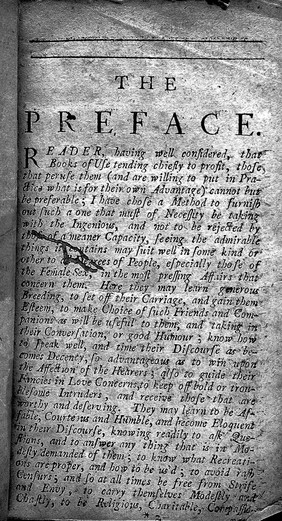 THE
PREFACE.
READER, having well considered, that
Books of Use tending chiefly to profit, those
that peruse them (and are willing to put in Pra-
ctice what is for their own Advantage) cannot but
be preferable; I have chose a Method to furnish
out such a one that must of Necessity be taking
with the Ingenious, and not to be rejected by
those of a meaner Capacity, seeing the admirable
things it contains may suit well in some kind or
other to all pieces of People, especially those of
the Female Sex, in the most pressing Affairs that
concern them. Here they may learn generous
Breeding, to set off their Carriage, and gain them
Esteem, to make Choice of such Friends and Com-
panions as will be useful to them, and taking in
their Conversation, or good Humour; know how
to speak well, and time their Discourse as be-
comes Decency, so advantageous as to win upon
the Affection of the Hearers; also to guide their
Fancies in Love Concerns, to keep off bold or tran-
blesome Intruders, and receive those that are
worthy and deserving. They may learn to be Af-
fable, Courteous and Humble, and become Eloquent
in their Discourse, knowing readily to ask Que-
stions, and to answer any thing that is in Mo-
desty demanded of them; to know what Recreati-
ons are proper, and how to be us'd; to avoid rash
Censurs; and so at all times be free from Strife
and Envy, to carry themselves Modestly and
Chastly, to be Religious, Charitable, Compassio-